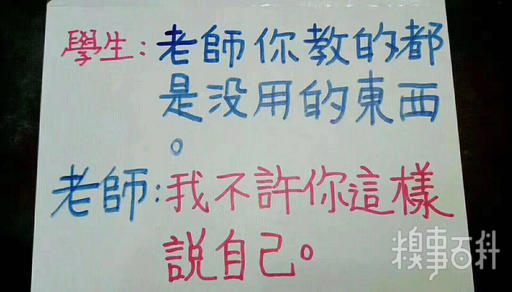 學生:老師你教的都
是没用的東西
。
老師:我不許你這樣
説自己。
糗事百科